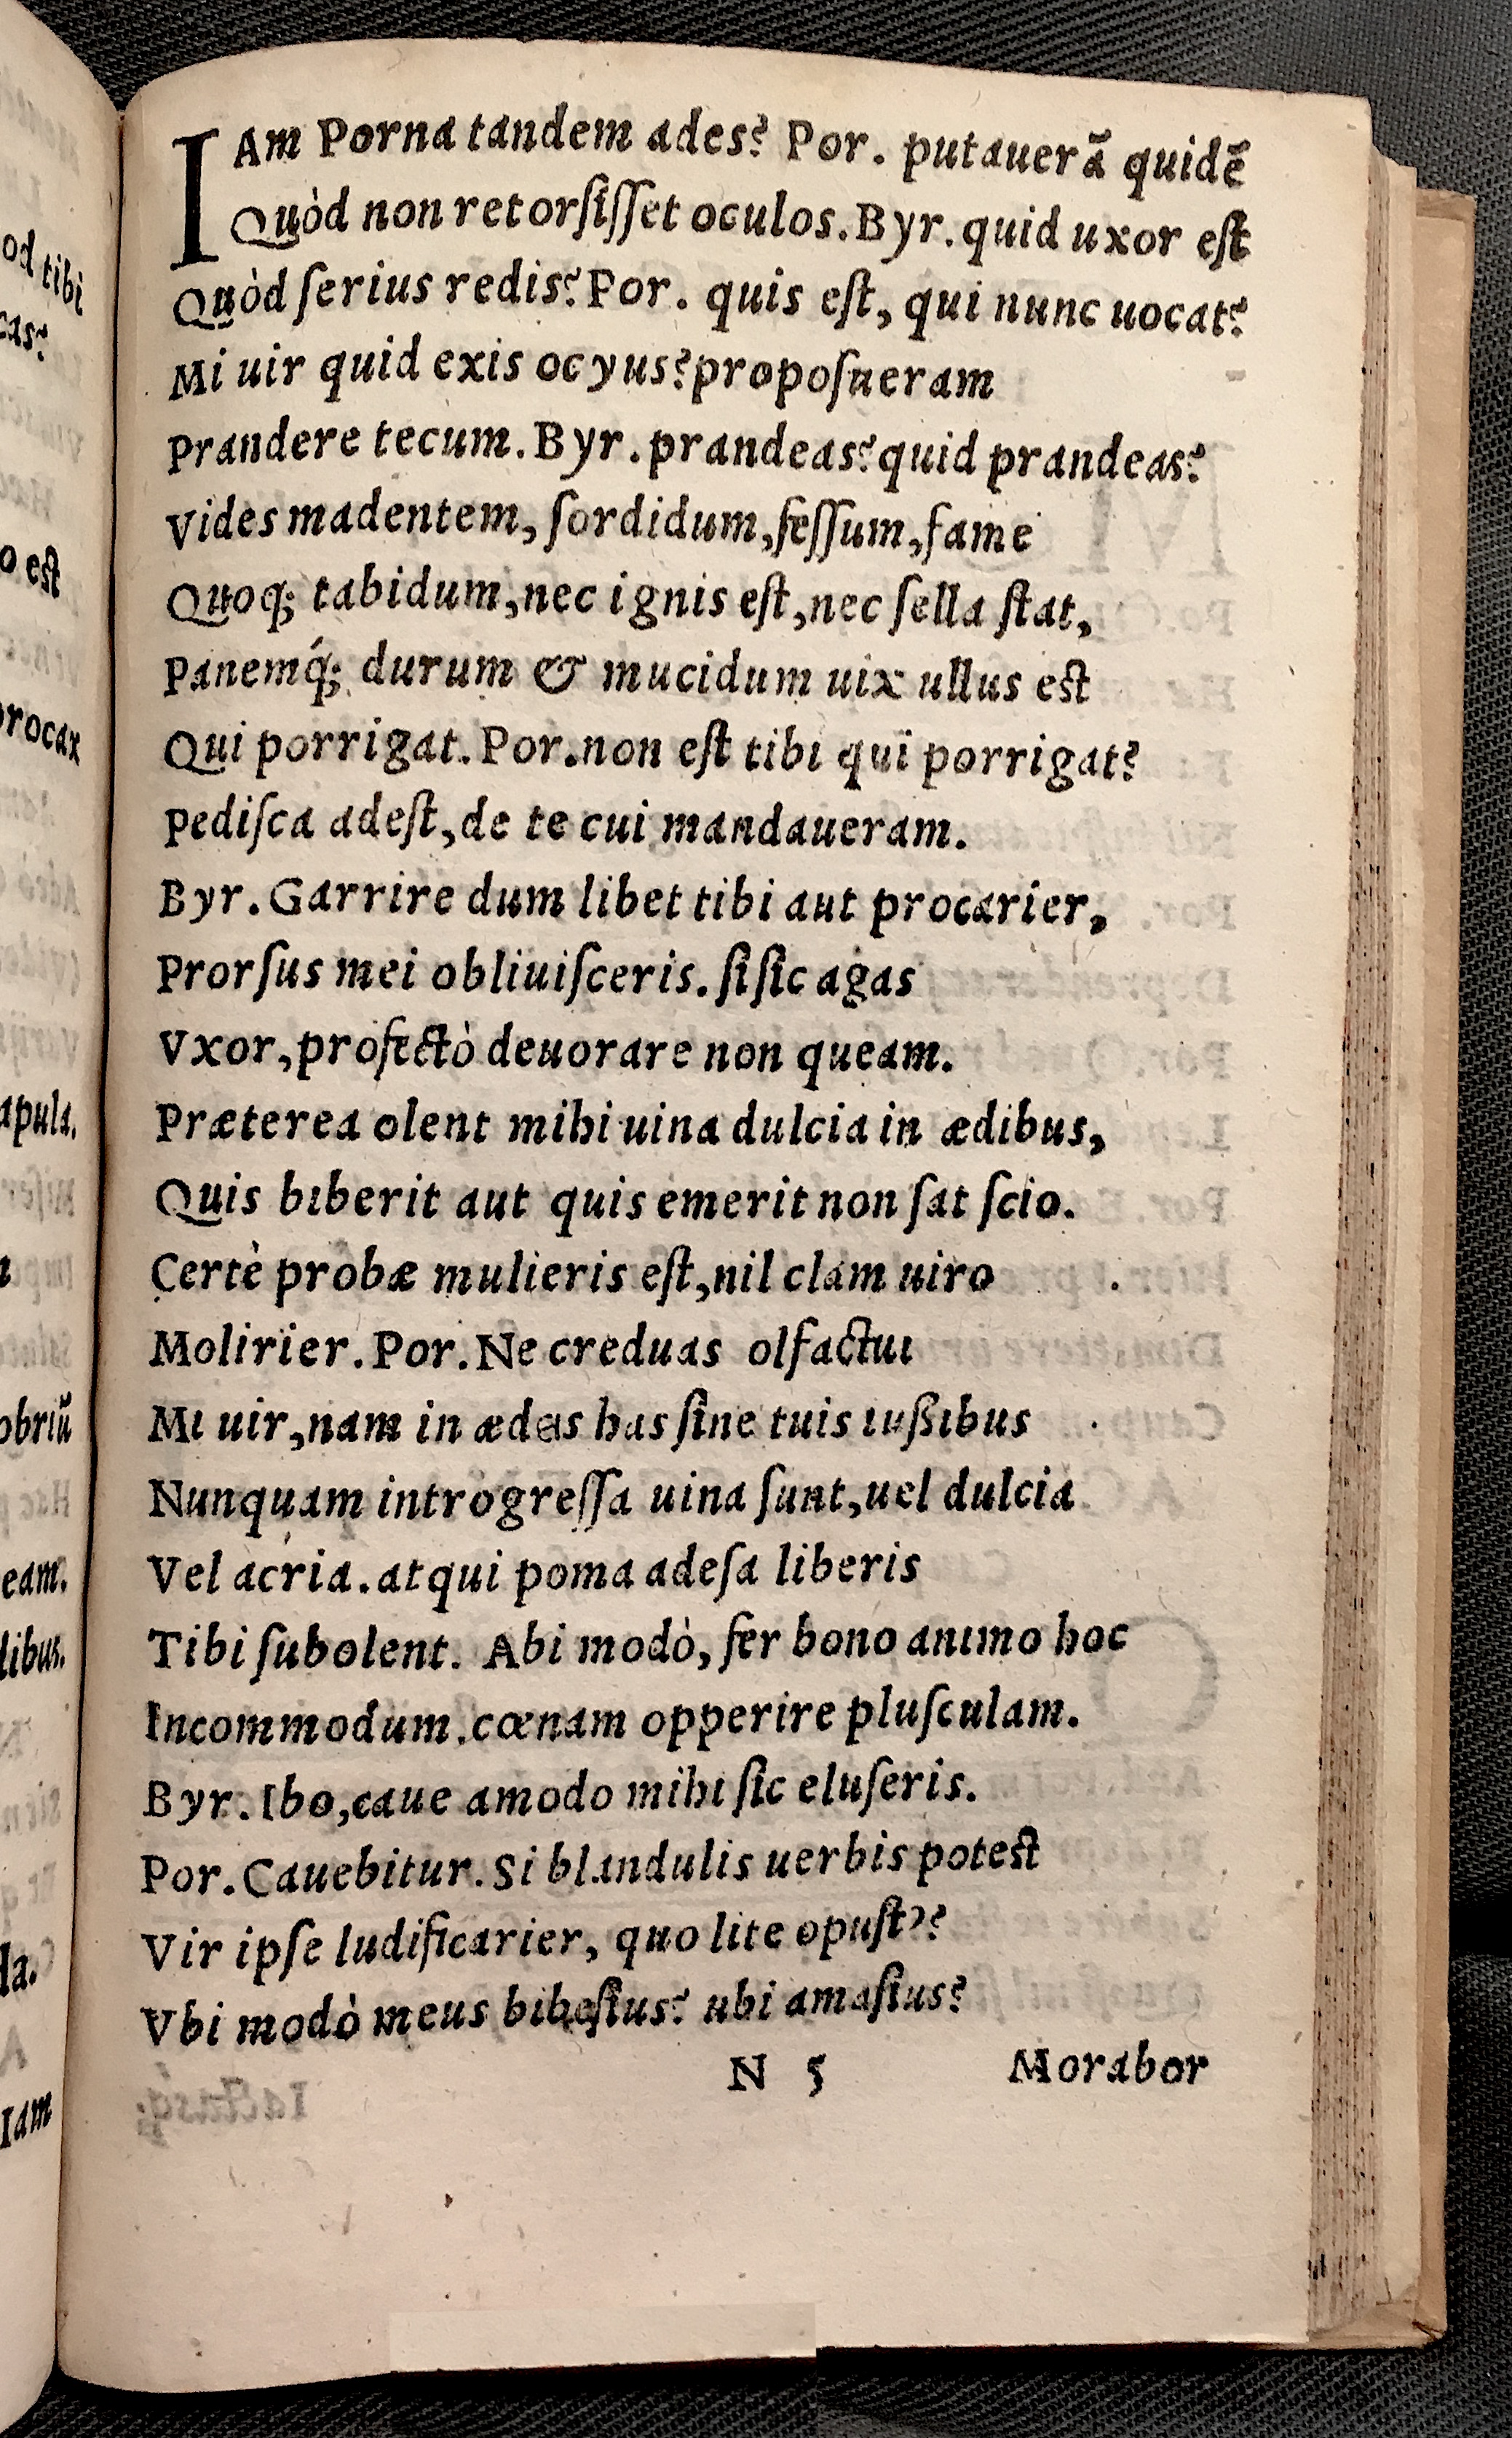 IAm Porna tandem ades? Por. putauerā quidē
Quòd non retorſiſſet oculos. Byr. quid uxor eſt
Quòd ſerius redis? Por. quis eſt, qui nunc uocat?
Mi uir quid exis ocyus? propoſueram
Prandere tecum. Byr. prandeas? quid prandeas?
Vides madentem, ſordidum, feſſum, fame
Quoq; tabidum, nec ignis eſt, nec ſella ſtat,
Panemq́; durum & mucidum uix ullus eſt
Qui porrigat. Por. non eſt tibi qui porrigat?
Pediſca adeſt, de te cui mandaueram.
Byr. Garrire dum libet tibi aut procarier,
Prorſus mei obliuiſceris. ſi ſic agas
Vxor, profectò deuorare non queam.
Præterea olent mihi uina dulcia in ædibus,
Quis biberit aut quis emerit non ſat ſcio.
Certè probæ mulieris eſt, nil clàm uiro
Molirier. Por. Ne creduas olfactui
Mi uir, nam in ædeis has ſine tuis iußibus
Nunquam introgreſſa uina ſunt, uel dulcia
Vel acria. atqui poma adeſa liberis
Tibi ſubolent. Abi modò, fer bono animo hoc
Incommodum. cœnam opperire pluſculam.
Byr. Ibo, caue amodo mihi ſic eluſeris.
Por. Cauebitur. Si blandulis uerbis poteſt
Vir ipſe ludificarier, quo lite opuſt'?
Vbi modò meus bibeſius? ubi amaſius?
N 5 Morabor
od tibi
cas?
o eſt
procax
apula.
obriū
eam.
libus.
la.
Iam